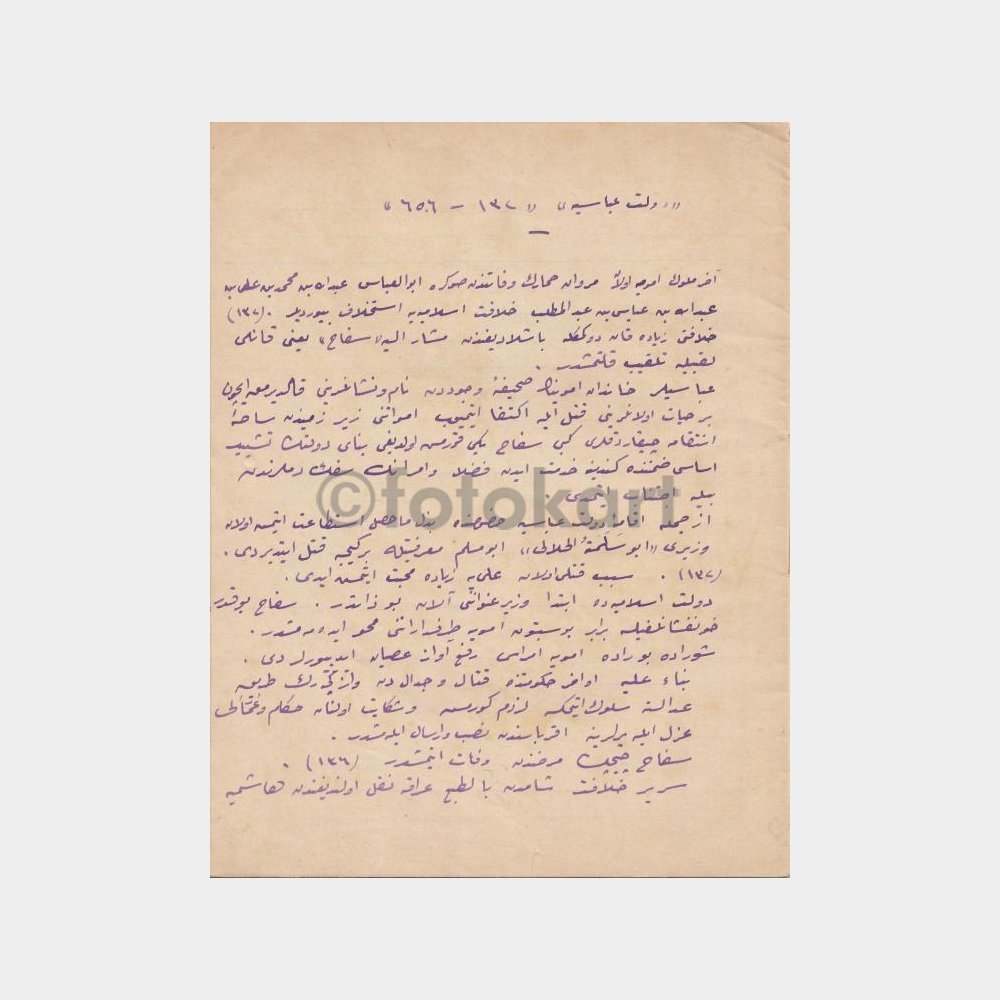 «دولت عباسيه» «١٣٢ – ٦٥٦»
آخر ملوك امويه اولان مروان حمارك وفاتندن صوكره ابو العباس عبدالله بن محمد بن على بن
عبدالله بن عباس بن عبد المطلب خلافت اسلاميه يه استخلاف بيورديلر . (١٣٢)
خلافتى زياده قان دوكمكله باشلاديغندن مشار اليه «سفاح» يعنى قانلى
لقبيله تلقيب قلنمشدر .
عباسيلر خاندان امويه نك صحيفۀ وجوددن نام و نشانلرينى قالديرمق ايچون
بر حيات اولانلرينى قتل ايله اكتفا ايتميوب امواتنى زير زميندن ساحۀ
انتقامه چيقاردقلرى كبى سفاح يكى قورمش اولديغى بناى دولتك تشييد
اساسى ضمننده كندينه خدمت ايدن فضلا و امرانك سفك دملرندن
بيله اجتناب ايتمدى
از جمله اقامۀ دولت عباسيه خصوصنده بذل ماحصل استطاعت ايتمش اولان
وزيرى «ابو سلمة الخلالى» ابو مسلم معرفتيله بر كيجه قتل ايتديردى .
(١٣٢) . سبب قتلى اولان على يه زياده محبت ايتمسى ايدى .
دولت اسلاميه ده ابتدا وزير عنوانى آلان بو ذاتدر . سفاح بو قدر
خونفشانلغيله برابر بوسبتون امويه طرفداراننى محو ايده مه مشدر .
شوراده بوراده امويه امراسى رفع آواز عصيان ايدييورلردى .
بناء عليه اواخر حكومتنده قتال و جدال دن واز كچه رك طريق
عدالته سلوك ايتمكه لزوم كورمش و شكايت اولنان حكام و عمالى
عزل ايله يرلرينه اقرباسندن نصب و ارسال ايله مشدر .
سفاح چيچك مرضندن وفات ايتمشدر (١٣٦) .
سرير خلافت شامدن بالطبع عراقه نقل اولنديغندن هاشميه
©fotokart